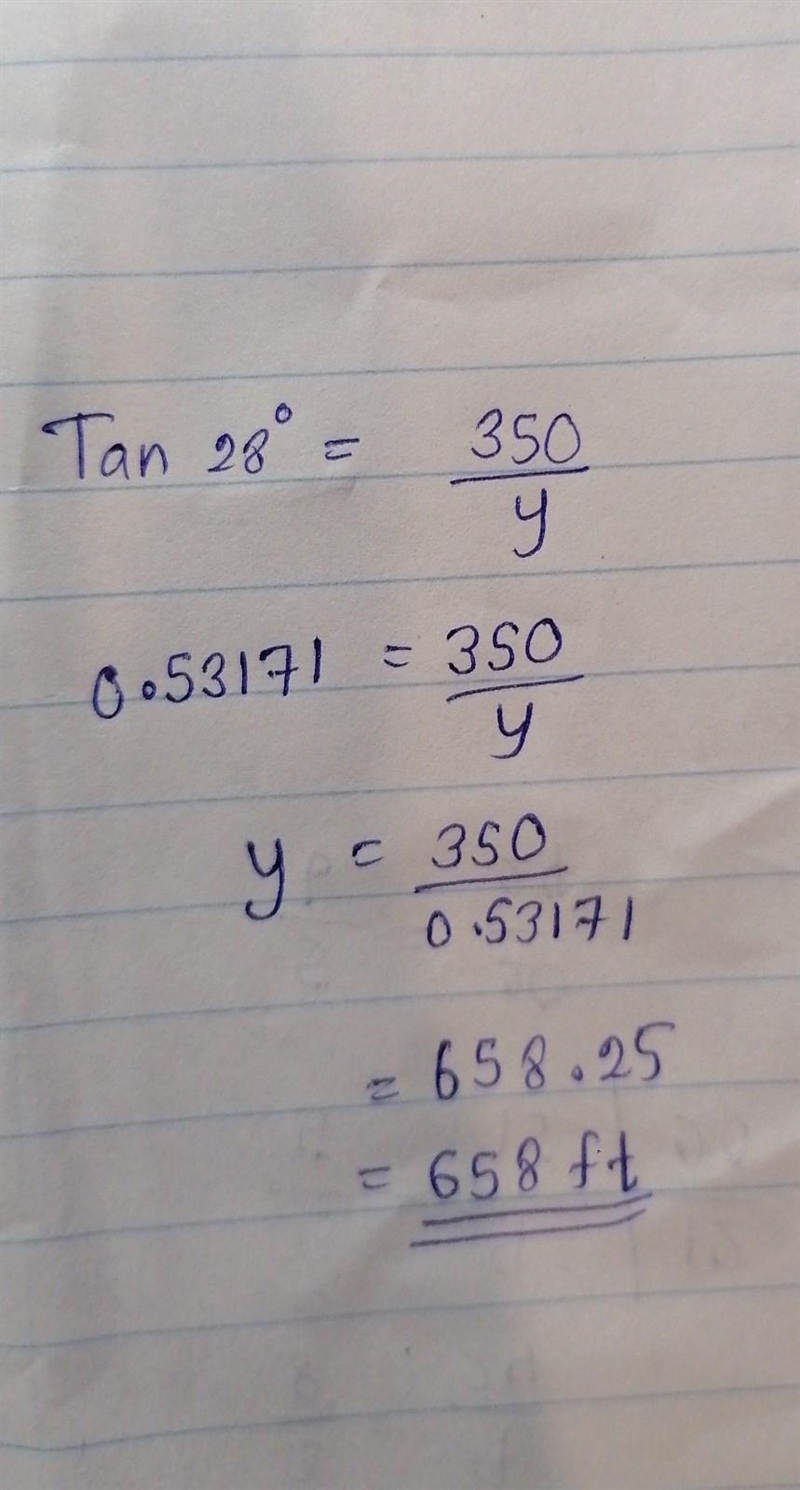 Tan 28° = 350/y
0.53171 = 350/y
y = 350/0.53171
= 658.25
= 658 ft